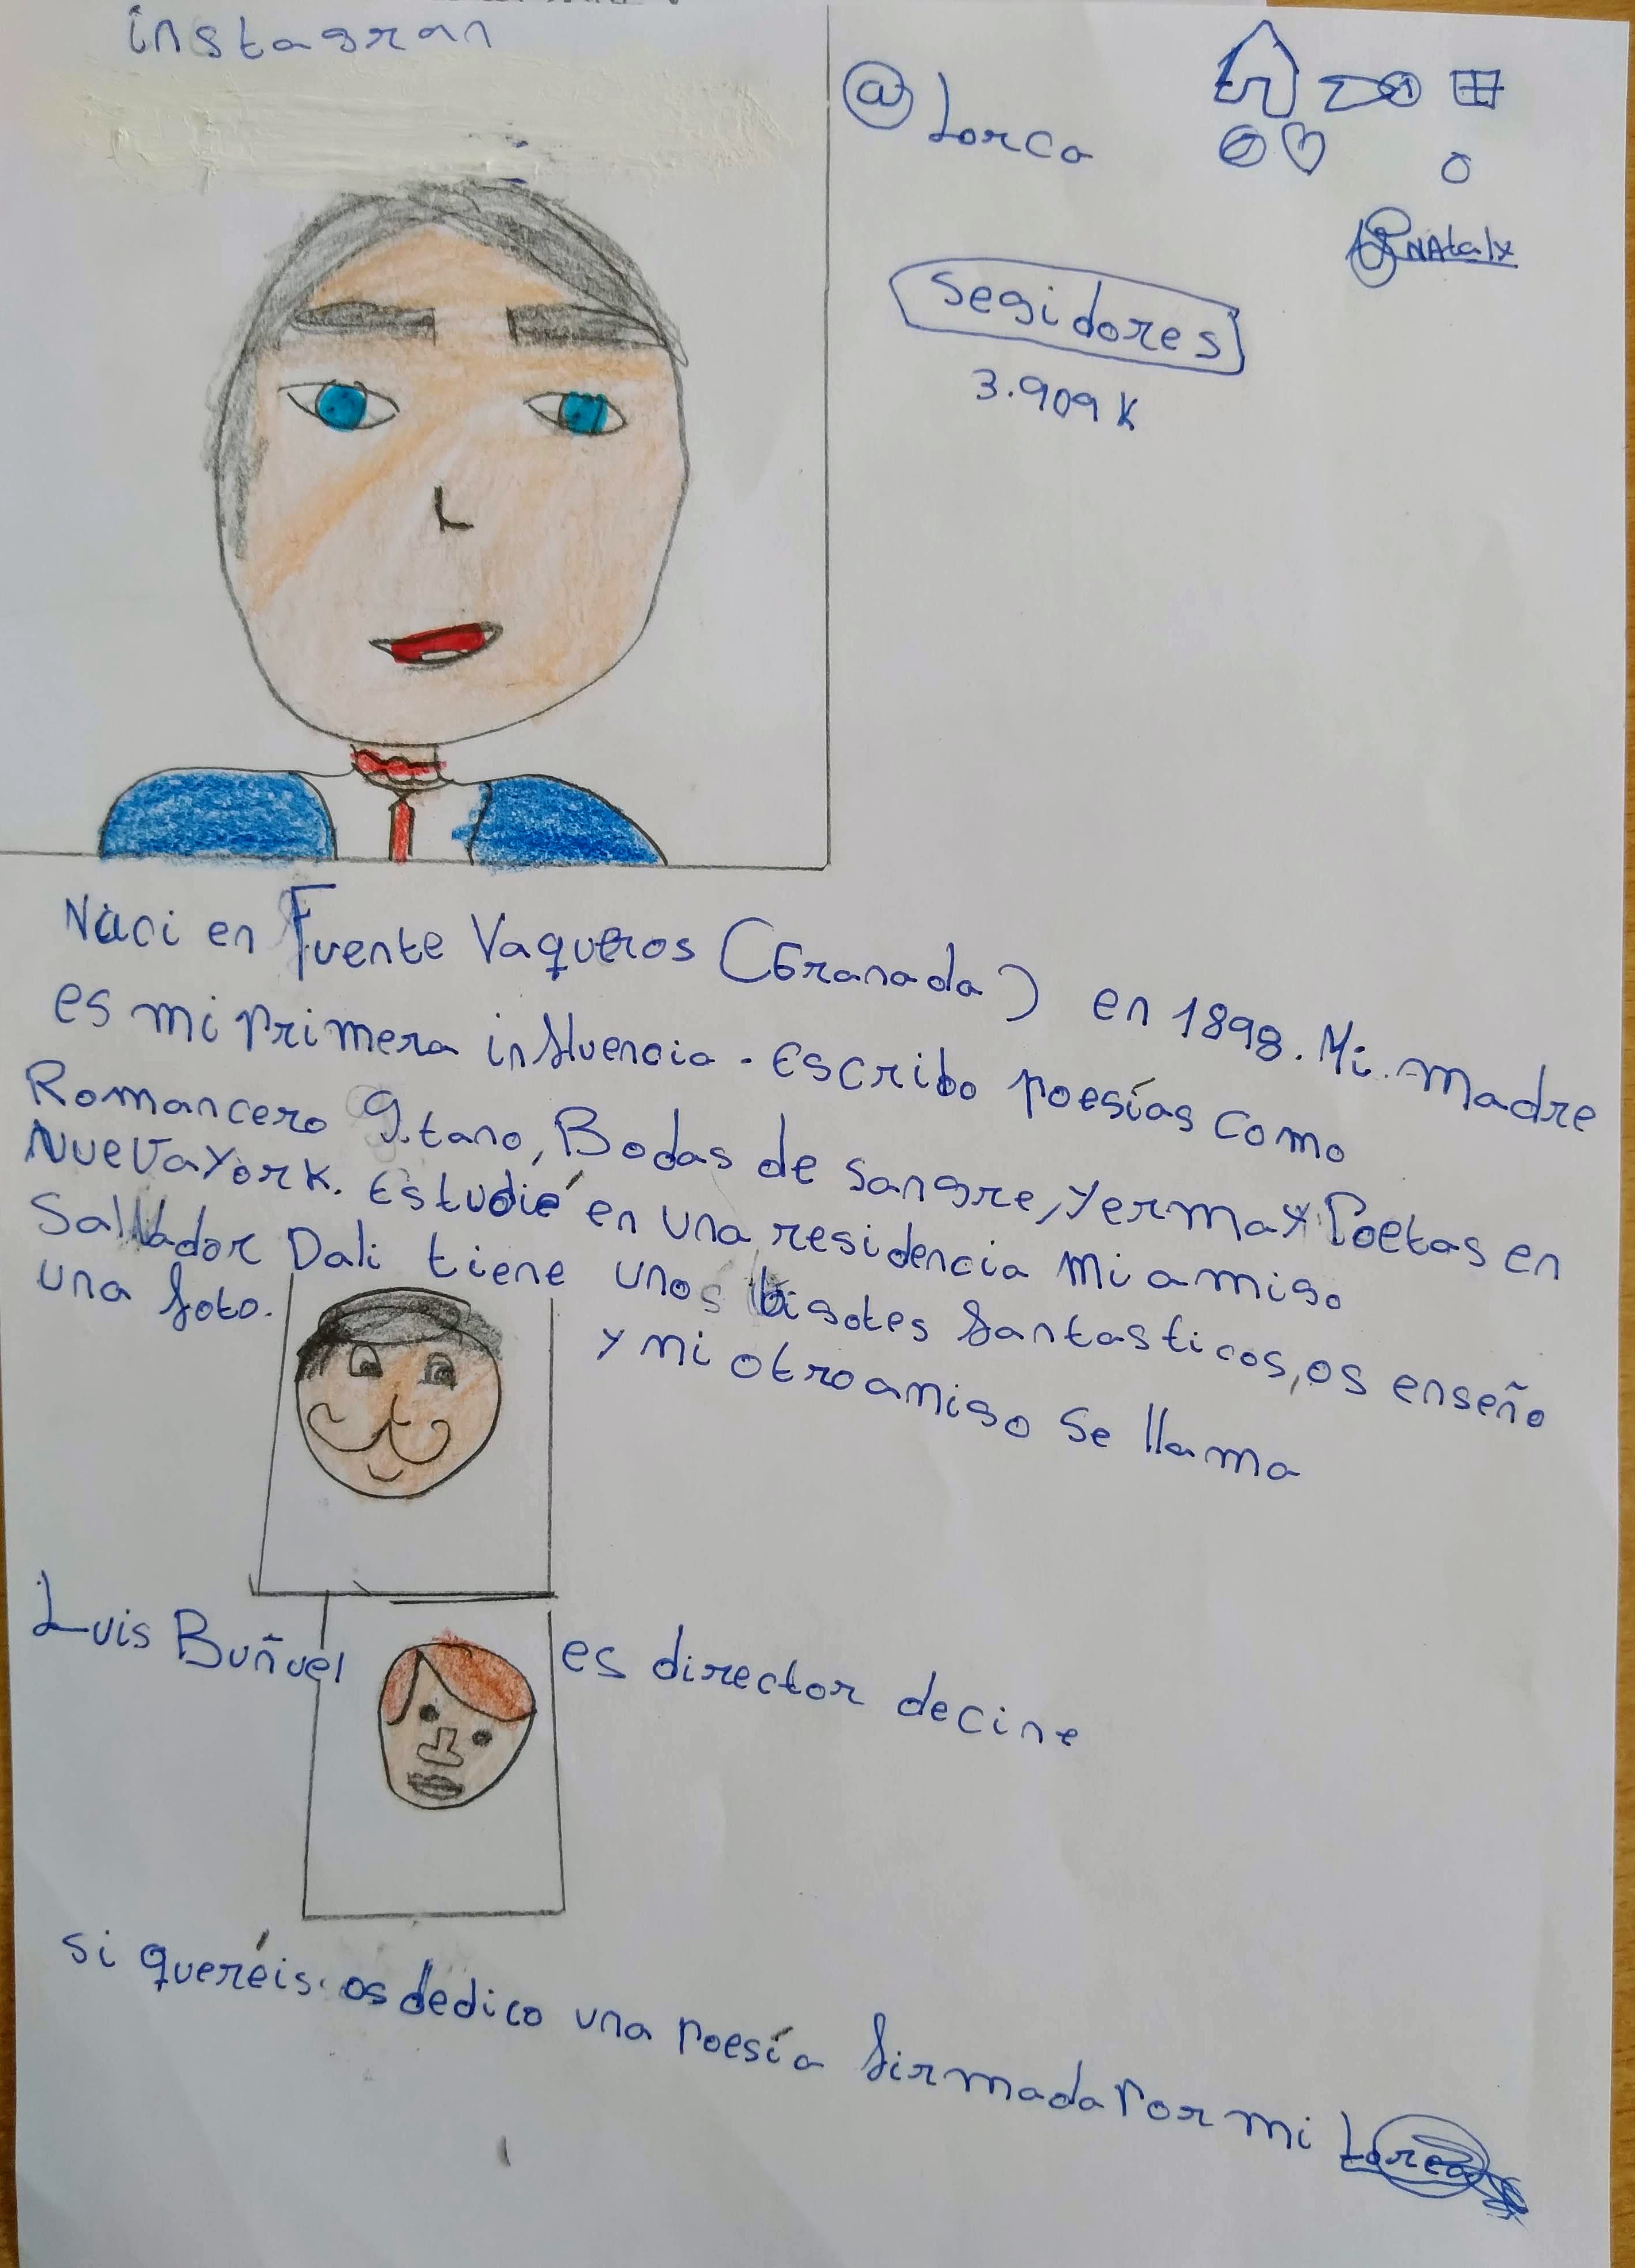 instagran
@Lorca
Segidores
3.909 K
Naci en Fuente Vaqueros (Granada) en 1898. Mi madre
es mi primera influencia. Escribo poesías como
Romancero gitano, Bodas de sangre, Yerma y Poetas en
Nueva York. Estudié en una residencia mi amigo
Sallvador Dali tiene unos bigotes fantasticos, os enseño
una foto.
y mi otro amigo se llama
Luis Buñuel es director de cine
si queréis os dedico una poesía firmada por mi Lorca